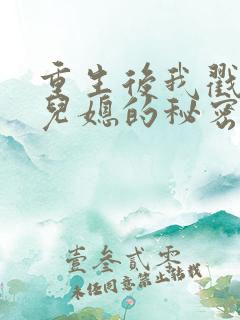 重生後我戳
兒媳的秘密
壹叁貳零
未任同意禁止轉載